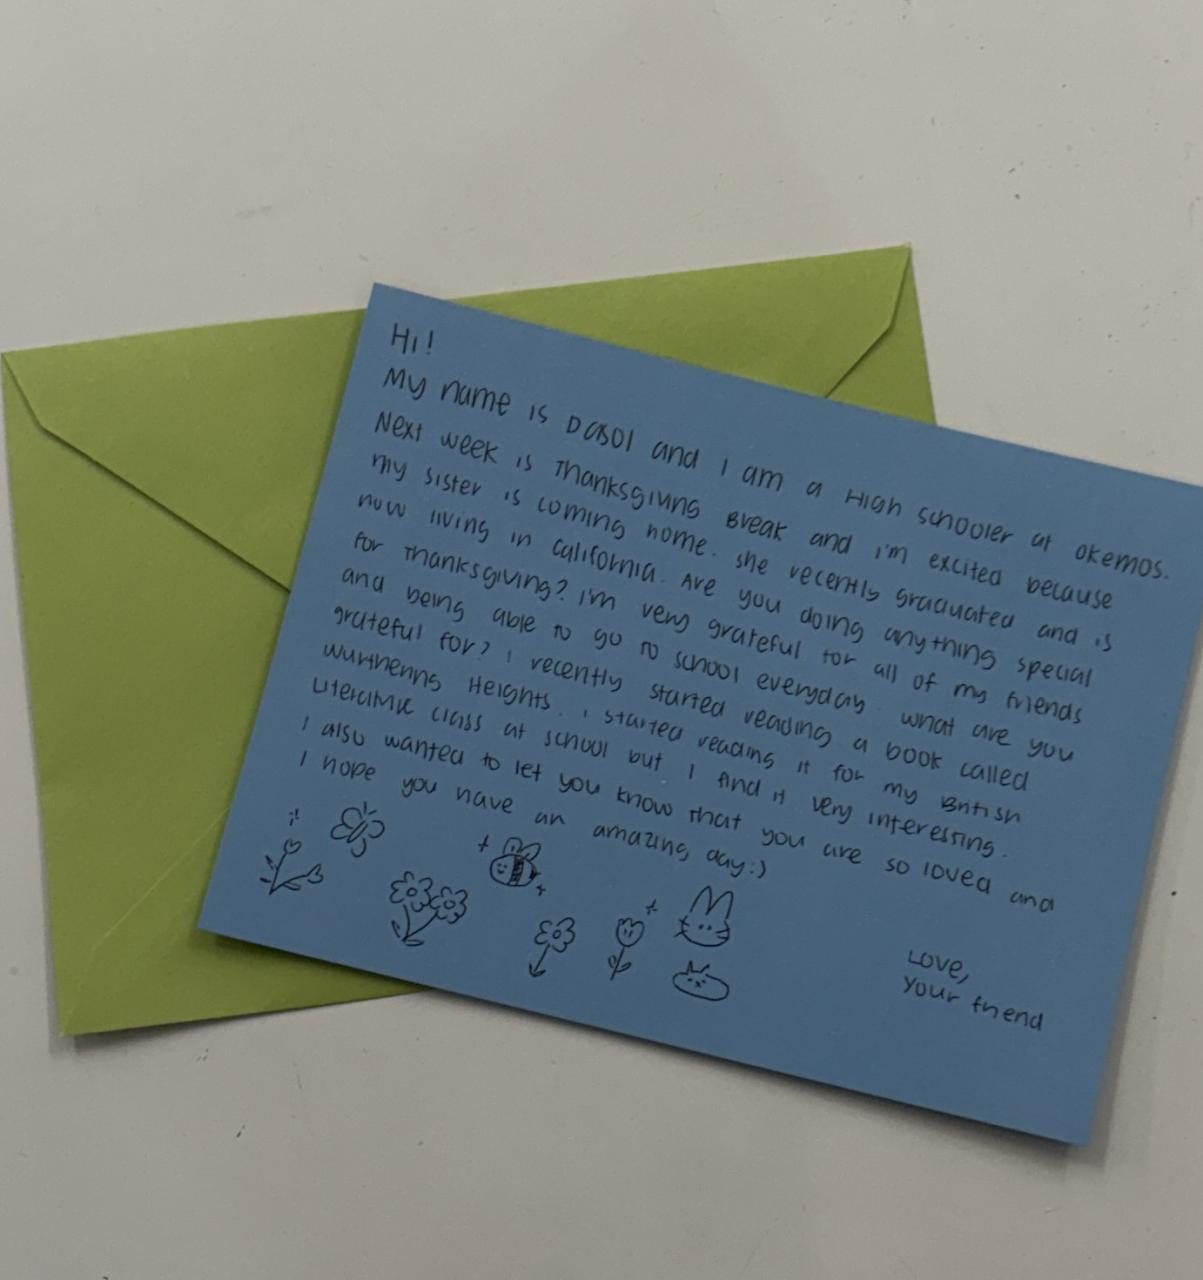 Hi!
My name is Dasol and I am a High schooler at okemos.
Next week is Thanksgiving Break and i'm excited because
my sister is coming home. she recently graduated and is
now living in california. Are you doing anything special
for Thanksgiving? I'm very grateful for all of my friends
and being able to go to school everyday. what are you
grateful for? I recently started reading a book called
wuthering Heights. I started reading it for my British
Literature class at school but I find it very interesting.
I also wanted to let you know that you are so loved and
I hope you have an amazing day:)
Love,
your friend